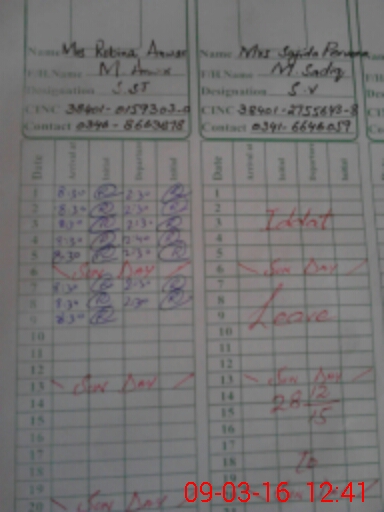 Name Mrs Robina Anwar
F/H.Name M Anwar
Designation S.ST
CINC 38401-0159303-0
Contact 0340-8603898
Date Arrival at Initial Departure Initial
1 8:30 2:30
2 8:30 2:30
3 8:30 2:30
4 8:30 2:40
5 8:30 2:30
6 Sun Day
7 8:30 2:30
8 8:30 2:30
9 8:30
10
11
12
13 Sun Day
14
15
16
17
18
19
20 Sun Day
Name Mrs Sajida Parveen
F/H.Name M Sadiq
Designation S.V
CINC 38401-2755643-8
Contact 0341-6646059
Date Arrival at Initial Departure Initial
1
2
3 Iddat
4
5
6 Sun Day
7
8
9 Leave
10
11
12
13 Sun Day
14 28 12
15 15
16
17
18 to
19
Sun Day
09-03-16 12:41